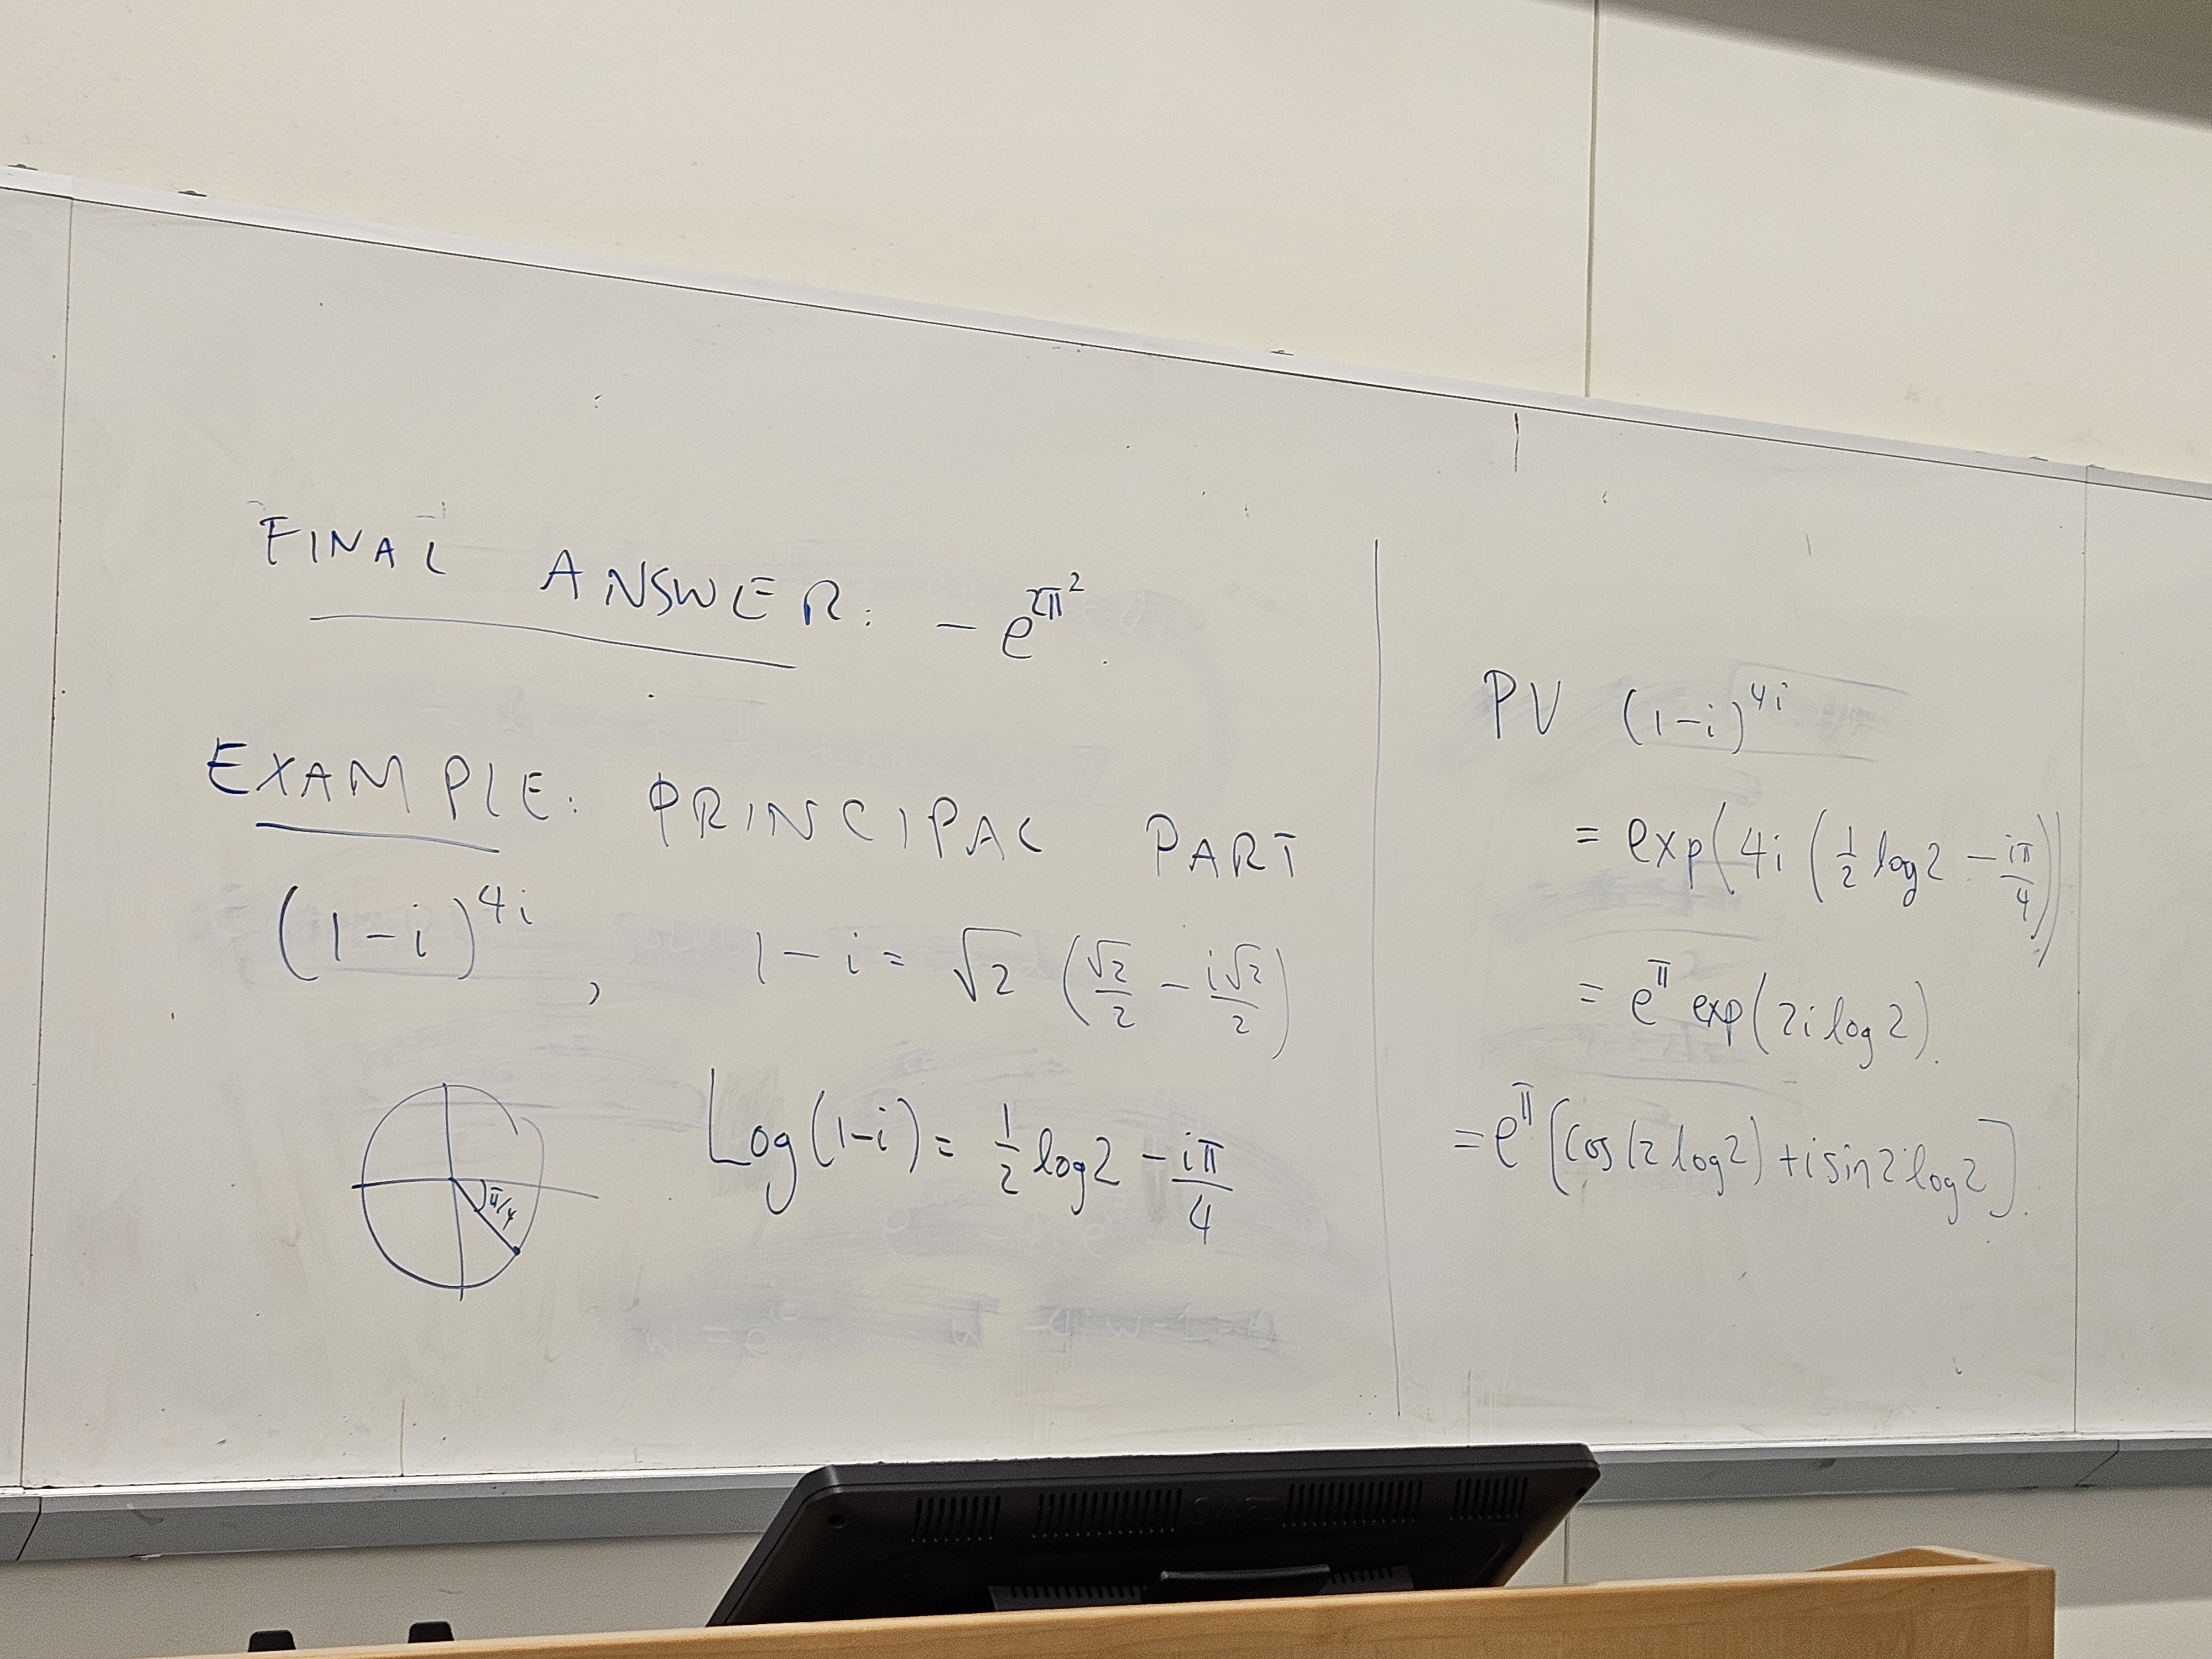 FINAL ANSWER: - e^{2π^2}.
EXAMPLE: PRINCIPAL PART
(1-i)^{4i}, 1-i = √2 (√2/2 - i√2/2)
π/4
Log(1-i) = 1/2 log2 - iπ/4
PV (1-i)^{4i}
= exp(4i (1/2 log2 - iπ/4))
= e^π exp(2i log2).
= e^π [cos(2 log2) + i sin 2 log2].